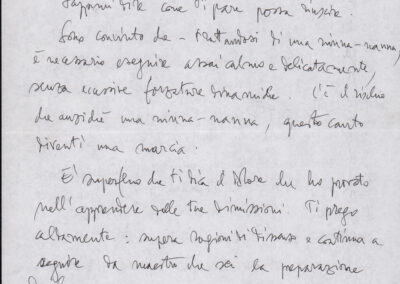 Sappimi dire come ti pare possa riuscire.
Sono convinto che - trattandosi di una ninna-nanna,
è necessario eseguire assai calmo e delicatamente,
senza eccessive forzature dinamiche. C'è il rischio
che anziché una ninna-nanna, questo canto
diventi una marcia.
E' superfluo che ti dica il dolore che ho provato
nell'apprendere delle tue dimissioni. Ti prego
altamente: supera ragioni di dissenso e continua a
seguire da maestro che sei la preparazione